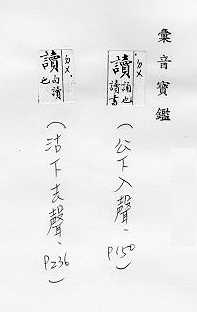 彙音寶鑑
讀 誦也 讀書
(公下入聲、P150)
讀 句讀也
(沽下去聲、P236)